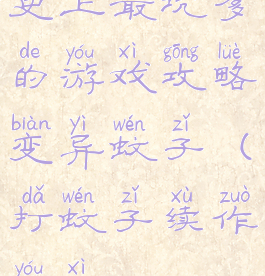 史上最坑爹
de yóu xì gōng lüè
的游戏攻略
biàn yì wén zǐ
变异蚊子（
dǎ wén zǐ xù zuò
打蚊子续作
yóu xì